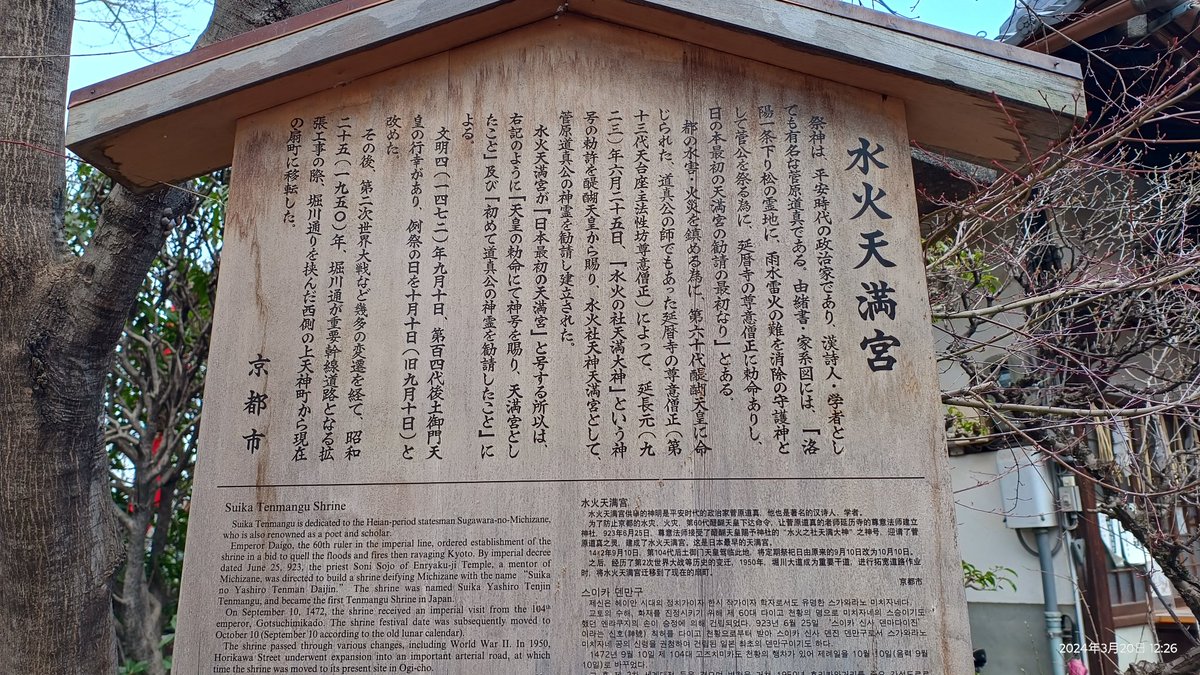 水火天満宮
祭神は、平安時代の政治家であり、漢詩人・学者とし
ても有名な菅原道真である。由緒書・家系図には、「洛
陽一条下り松の霊地に、雨水雷火の難を消除の守護神と
して菅公を祭る為に、延暦寺の尊意僧正に勅命ありし、
日の本最初の天満宮の勧請の最初なり」とある。
都の水害・火災を鎮める為に、第六十代醍醐天皇に命
じられた、道真公の師でもあった延暦寺の尊意僧正(第
十三代天台座主法性坊尊意僧正)によって、延長元(九
二三)年六月二十五日、「水火の社天満大神」という神
号の勅許を醍醐天皇から賜り、水火社天神天満宮として、
菅原道真公の神霊を勧請し建立された。
水火天満宮が「日本最初の天満宮」と号する所以は、
右記のように「天皇の勅命にて神号を賜り、天満宮とし
たこと」及び「初めて道真公の神霊を勧請したこと」に
よる。
文明四(一四七二)年九月十日、第百四代後土御門天
皇の行幸があり、例祭の日を十月十日(旧九月十日)と
改めた。
その後、第二次世界大戦など幾多の変遷を経て、昭和
二十五(一九五〇)年、堀川通が重要幹線道路となる拡
張工事の際、堀川通りを挟んだ西側の上天神町から現在
の扇町に移転した。
京都市
Suika Tenmangu Shrine
Suika Tenmangu is dedicated to the Heian-period statesman Sugawara-no-Michizane,
who is also renowned as a poet and scholar.
Emperor Daigo, the 60th ruler in the imperial line, ordered establishment of the
shrine in a bid to quell the floods and fires then ravaging Kyoto. By imperial decree
dated June 25, 923, the priest Soni Sojo of Enryaku-ji Temple, a mentor of
Michizane, was directed to build a shrine deifying Michizane with the name "Suika
no Yashiro Tenman Daijin." The shrine was named Suika Yashiro Tenjin
Tenmangu, and became the first Tenmangu Shrine in Japan.
On September 10, 1472, the shrine received an imperial visit from the 104th
emperor, Gotsuchimikado. The shrine festival date was subsequently moved to
October 10 (September 10 according to the old lunar calendar).
The shrine passed through various changes, including World War II. In 1950,
Horikawa Street underwent expansion into an important arterial road, at which
time the shrine was moved to its present site in Ogi-cho.
水火天满宫
水火天满宫供奉的神明是平安时代的政治家菅原道真，他也是著名的汉诗人、学者。
为了防止京都的水灾、火灾，第60代醍醐天皇下达命令，让菅原道真的老师延历寺的尊意法师建立
神社，923年6月25日，尊意法师接受了醍醐天皇赐予神社的"水火之社天满大神"之神号，迎请了菅
原道真之灵，建成了水火天满宫，这是日本最早的天满宫。
1472年9月10日，第104代后土御门天皇驾临此地，将定期祭祀日由原来的9月10日改为10月10日。
之后，经历了第2次世界大战等历史的变迁，1950年，堀川大道成为重要干道，进行拓宽道路作业
时，将水火天满宫迁移到了现在的扇町。
京都市
스이카 덴만구
제신은 헤이안 시대의 정치가이자 한시 작가이자 학자로서도 유명한 스가와라노 미치자네다.
교토의 수해, 화재를 진정시키기 위해 제 60대 다이고 천황의 명으로 미치자네의 스승이기도
했던 엔랴쿠지의 손이 승정에 의해 건립되었다. 923년 6월 25일 '스이카 신사 덴마다이진'
이라는 신호(神號) 칙허를 다이고 천황으로부터 받아 스이카 신사 덴진 덴만구로서 스가와라노
미치자네 공의 신령을 권청하여 건립된 일본 최초의 덴만구이기도 하다.
1472년 9월 10일 제 104대 고츠치미카도 천황의 행차가 있어 제례일을 10월 10일(음력 9월
10일)로 바꾸었다.
2024年3月20日 12:26